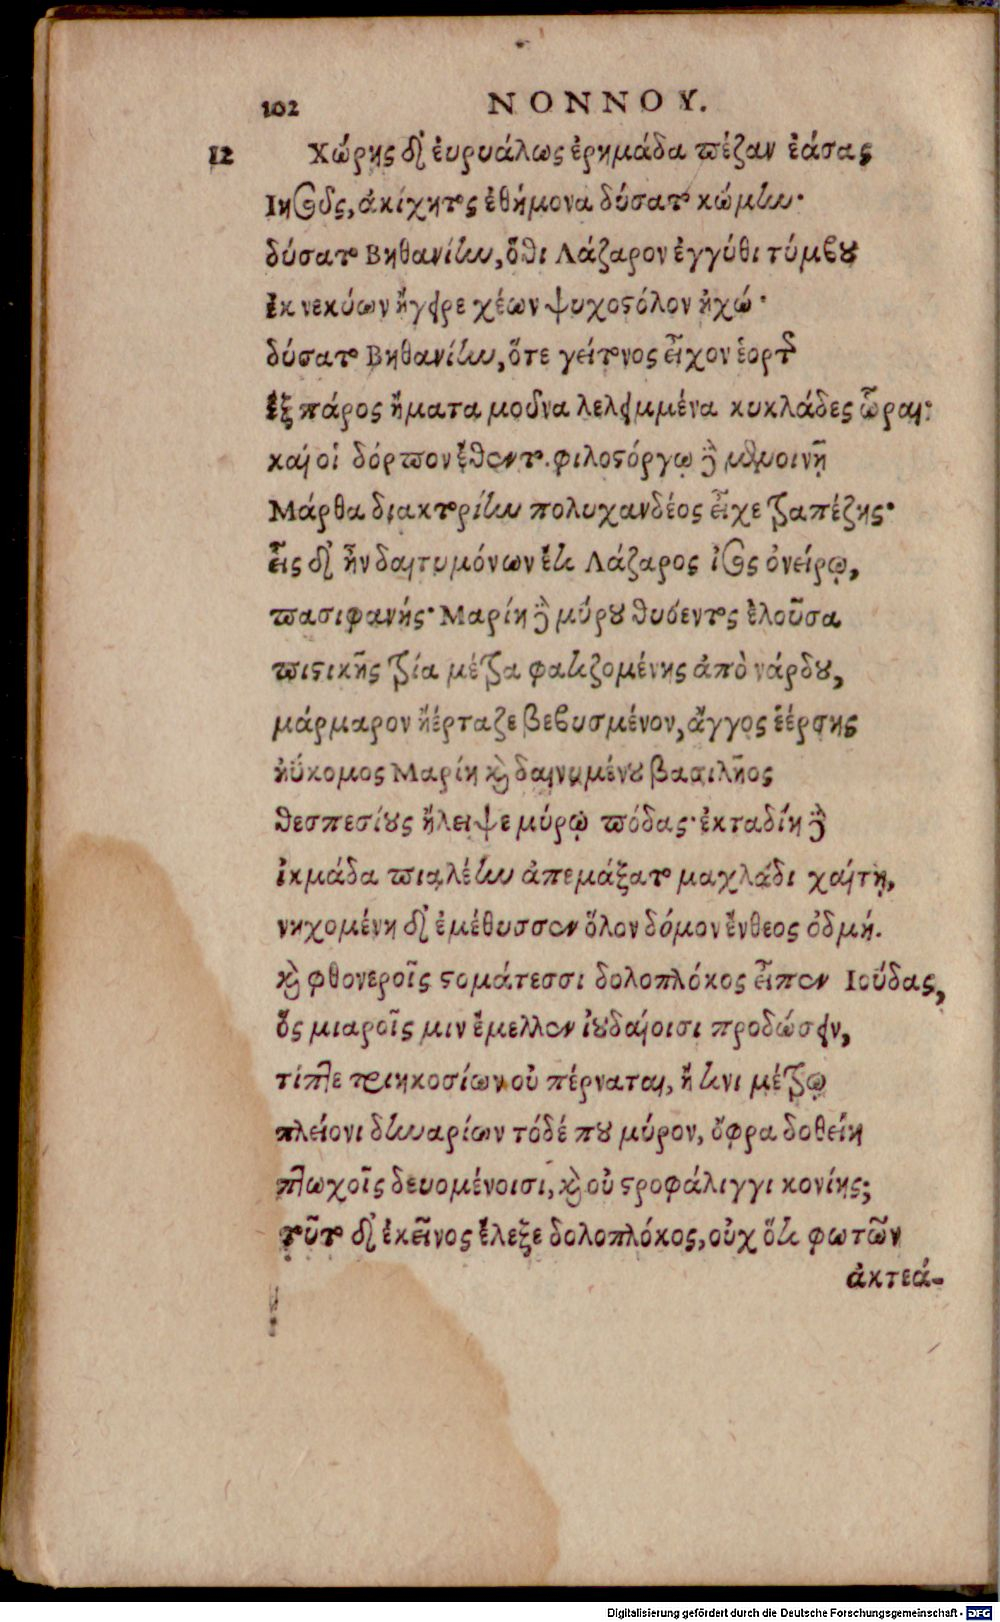 102 ΝΟΝΝΟΥ.
12 Χώρης δ' ἐυρυάλως ἐρημάδα πέζαν ἐάσας
Ιησοῦς, ἀκίχητος ἐθήμονα δύσατο κώμην·
δύσατο Βηθανίην, ὅθι Λάζαρον ἐγγύθι τύμβου
ἐκ νεκύων ἤγειρε χέων ψυχοστόλον ἠχώ·
δύσατο Βηθανίην, ὅτε γείτονος εἶχον ἑορτῆς
ἓξ πάρος ἤματα μοῦνα λελειμμένα κυκλάδες ὧραι·
καί οἱ δόρπον ἔθεντο. φιλοστόργῳ δὲ μενοινῇ
Μάρθα διακτορίην πολυχανδέος εἶχε τραπέζης·
εἷς δ' ἦν δαιτυμόνων ἔην Λάζαρος ἶσος ὀνείρῳ,
πασιφανής· Μαρίη δὲ μύρου θυόεντος ἑλοῦσα
πιστικῆς τρία μέτρα φατιζομένης ἀπὸ νάρδου,
μάρμαρον ἠέρταζε βεβυσμένον, ἄγγος ἐέρσης
ἠΰκομος Μαρίη καὶ δαινυμένου βασιλῆος
θεσπεσίους ἤλειψε μύρῳ πόδας· ἐκταδίη δὲ
ἰκμάδα πιαλέην ἀπεμάξατο μαχλάδι χαίτῃ,
νηχομένη δ' ἐμέθυσσεν ὅλον δόμον ἔνθεος ὀδμή.
καὶ φθονεροῖς στομάτεσσι δολοπλόκος εἶπεν Ιούδας,
ὃς μιαροῖς μιν ἔμελλεν ἰουδαίοισι προδώσειν,
τίπτε τριηκοσίων οὐ πέρναται, ἤ τινι μέτρῳ
πλείονι δηναρίων τόδέ που μύρον, ὄφρα δοθείη
πτωχοῖς δευομένοισι, καὶ οὐ στροφάλιγγι κονίης;
τοῦτο δ' ἐκεῖνος ἔλεξε δολοπλόκος, οὐχ ὅτι φωτῶν
ἀκτεά-
Digitalisierung gefördert durch die Deutsche Forschungsgemeinschaft - DFG